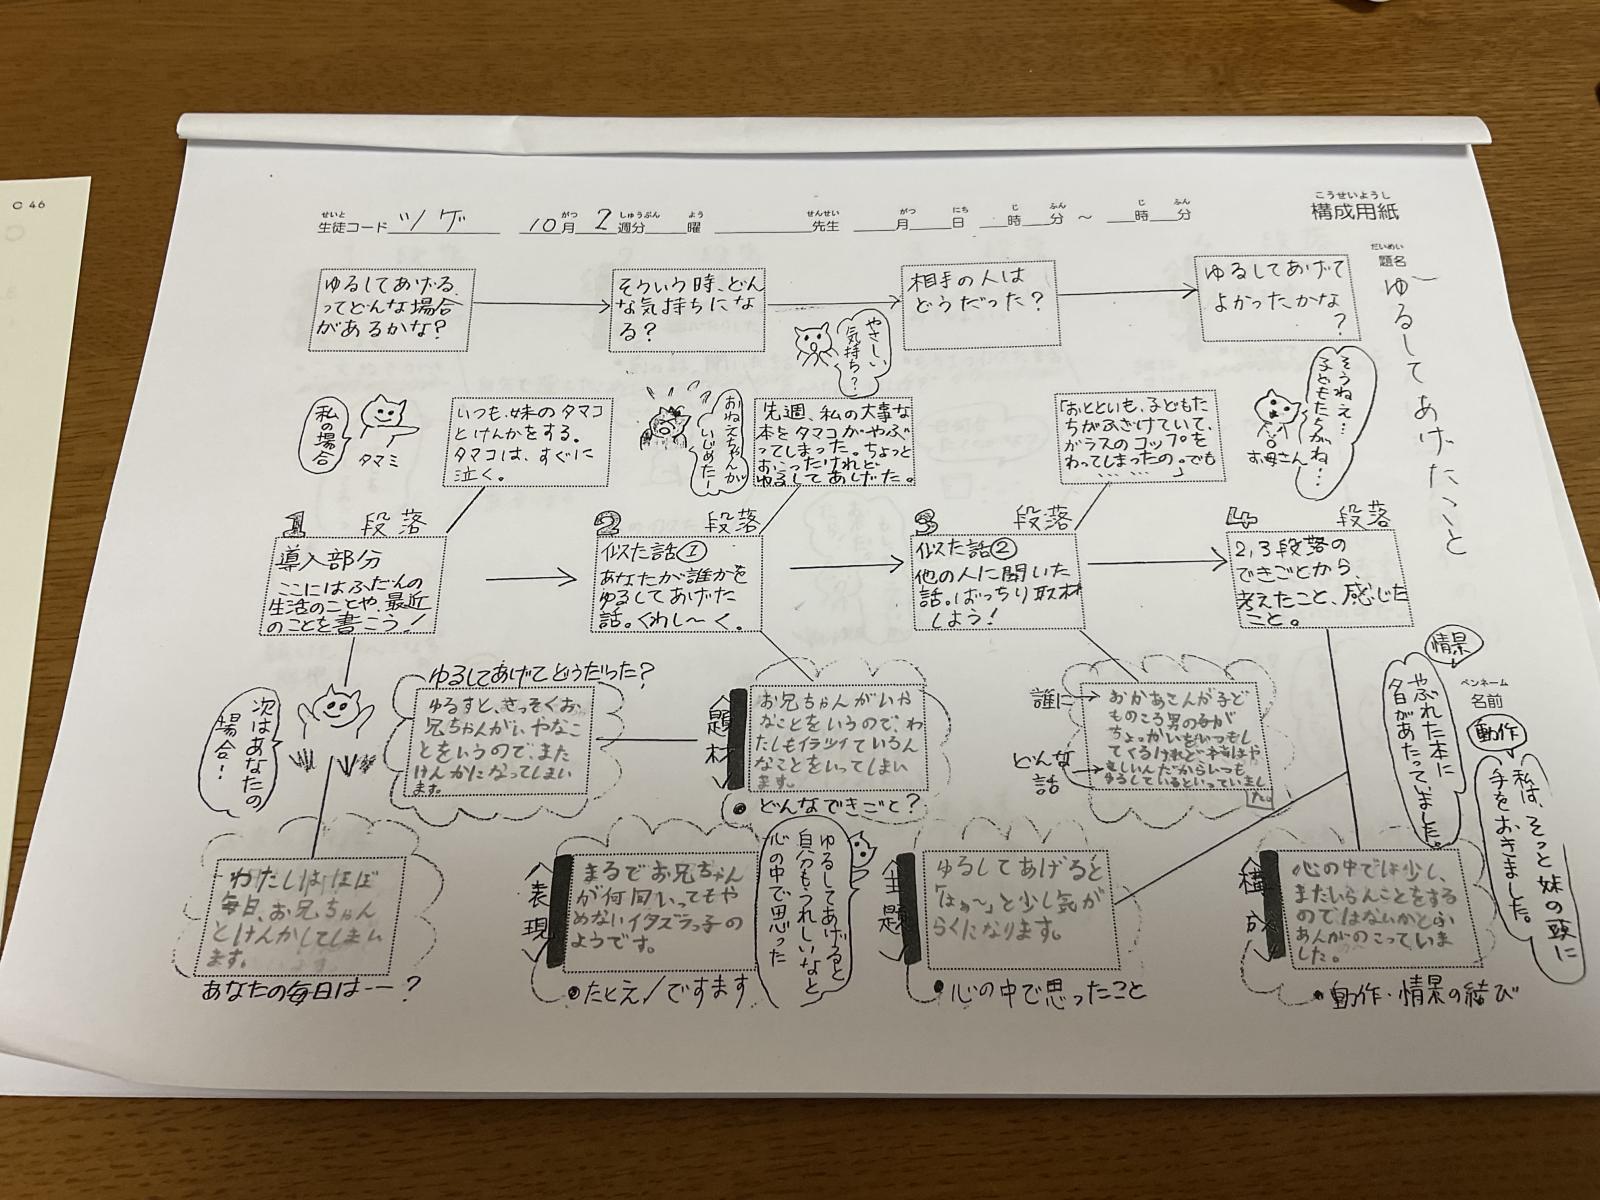 C 46
こうせいようし
構成用紙
せいと
生徒コード ツゲ
がつ しゅうぶん よう
10月 2週分 曜
せんせい
先生
がつ にち じ ふん じ ふん
月 日 時 分 ～ 時 分
だいめい
題名
ゆるしてあげたこと
ペンネーム
名前
ゆるしてあげる、
ってどんな場合
があるかな?
そういう時、どん
な気持ちにな
る?
相手の人は
どうだった?
ゆるしてあげて
よかったかな
?
私の場合
タマミ
いつも、妹のタマコ
とけんかをする。
タマコは、すぐに
泣く。
おねえちゃんが
いじめたー
やさしい
気持ち?
先週、私の大事な
本をタマコがやぶ
ってしまった。ちょっと
おこったけれど
ゆるしてあげた。
「おとといも、子どもた
ちがふざけていて、
ガラスのコップを
わってしまったの。でも
……………」
お母さん
そうねえ…
子どもたちがね…
1 段落
導入部分
ここにはふだんの
生活のことや、最近
のことを書こう!
2 段落
似た話①
あなたが誰かを
ゆるしてあげた
話。くわし〜く。
3 段落
似た話②
他の人に聞いた
話。ばっちり取材
しよう!
4 段落
2,3段落の
できごとから、
考えたこと、感じた
こと。
次はあなたの
場合!
ゆるしてあげてどうだった?
ゆるすと、さっそくお
兄ちゃんがいやなこ
とをいうので、また
けんかになってしまい
ます。
題材
お兄ちゃんがいや
なことをいうので、わ
たしもイライラしているん
なことをいってしまい
ます。
どんなできごと?
誰に
どんな
話
おかあさんが子ど
ものころ男の子が
ちょっかいをいつもし
てくるけれど本当はや
さしいんだからいつも
ゆるしているといっていまし
た。
情景
やぶれた本に
夕日があたっていました。
動作
私は、そっと妹の頭に
手をおきました。
わたしはほぼ
毎日、お兄ちゃん
とけんかしてしまい
ます。
あなたの毎日は――?
表現
まるでお兄ちゃん
が何回いってもや
めないイタズラっ子の
ようです。
たとえ/ですます
ゆるしてあげると
自分もうれしいなと
心の中で思った
主題
ゆるしてあげると
「はぁ〜」と少し気が
らくになります。
心の中で思ったこと
構成
心の中では少し、
またいらんことをする
のではないかとふ
あんがのこっていま
した。
動作・情景の結び